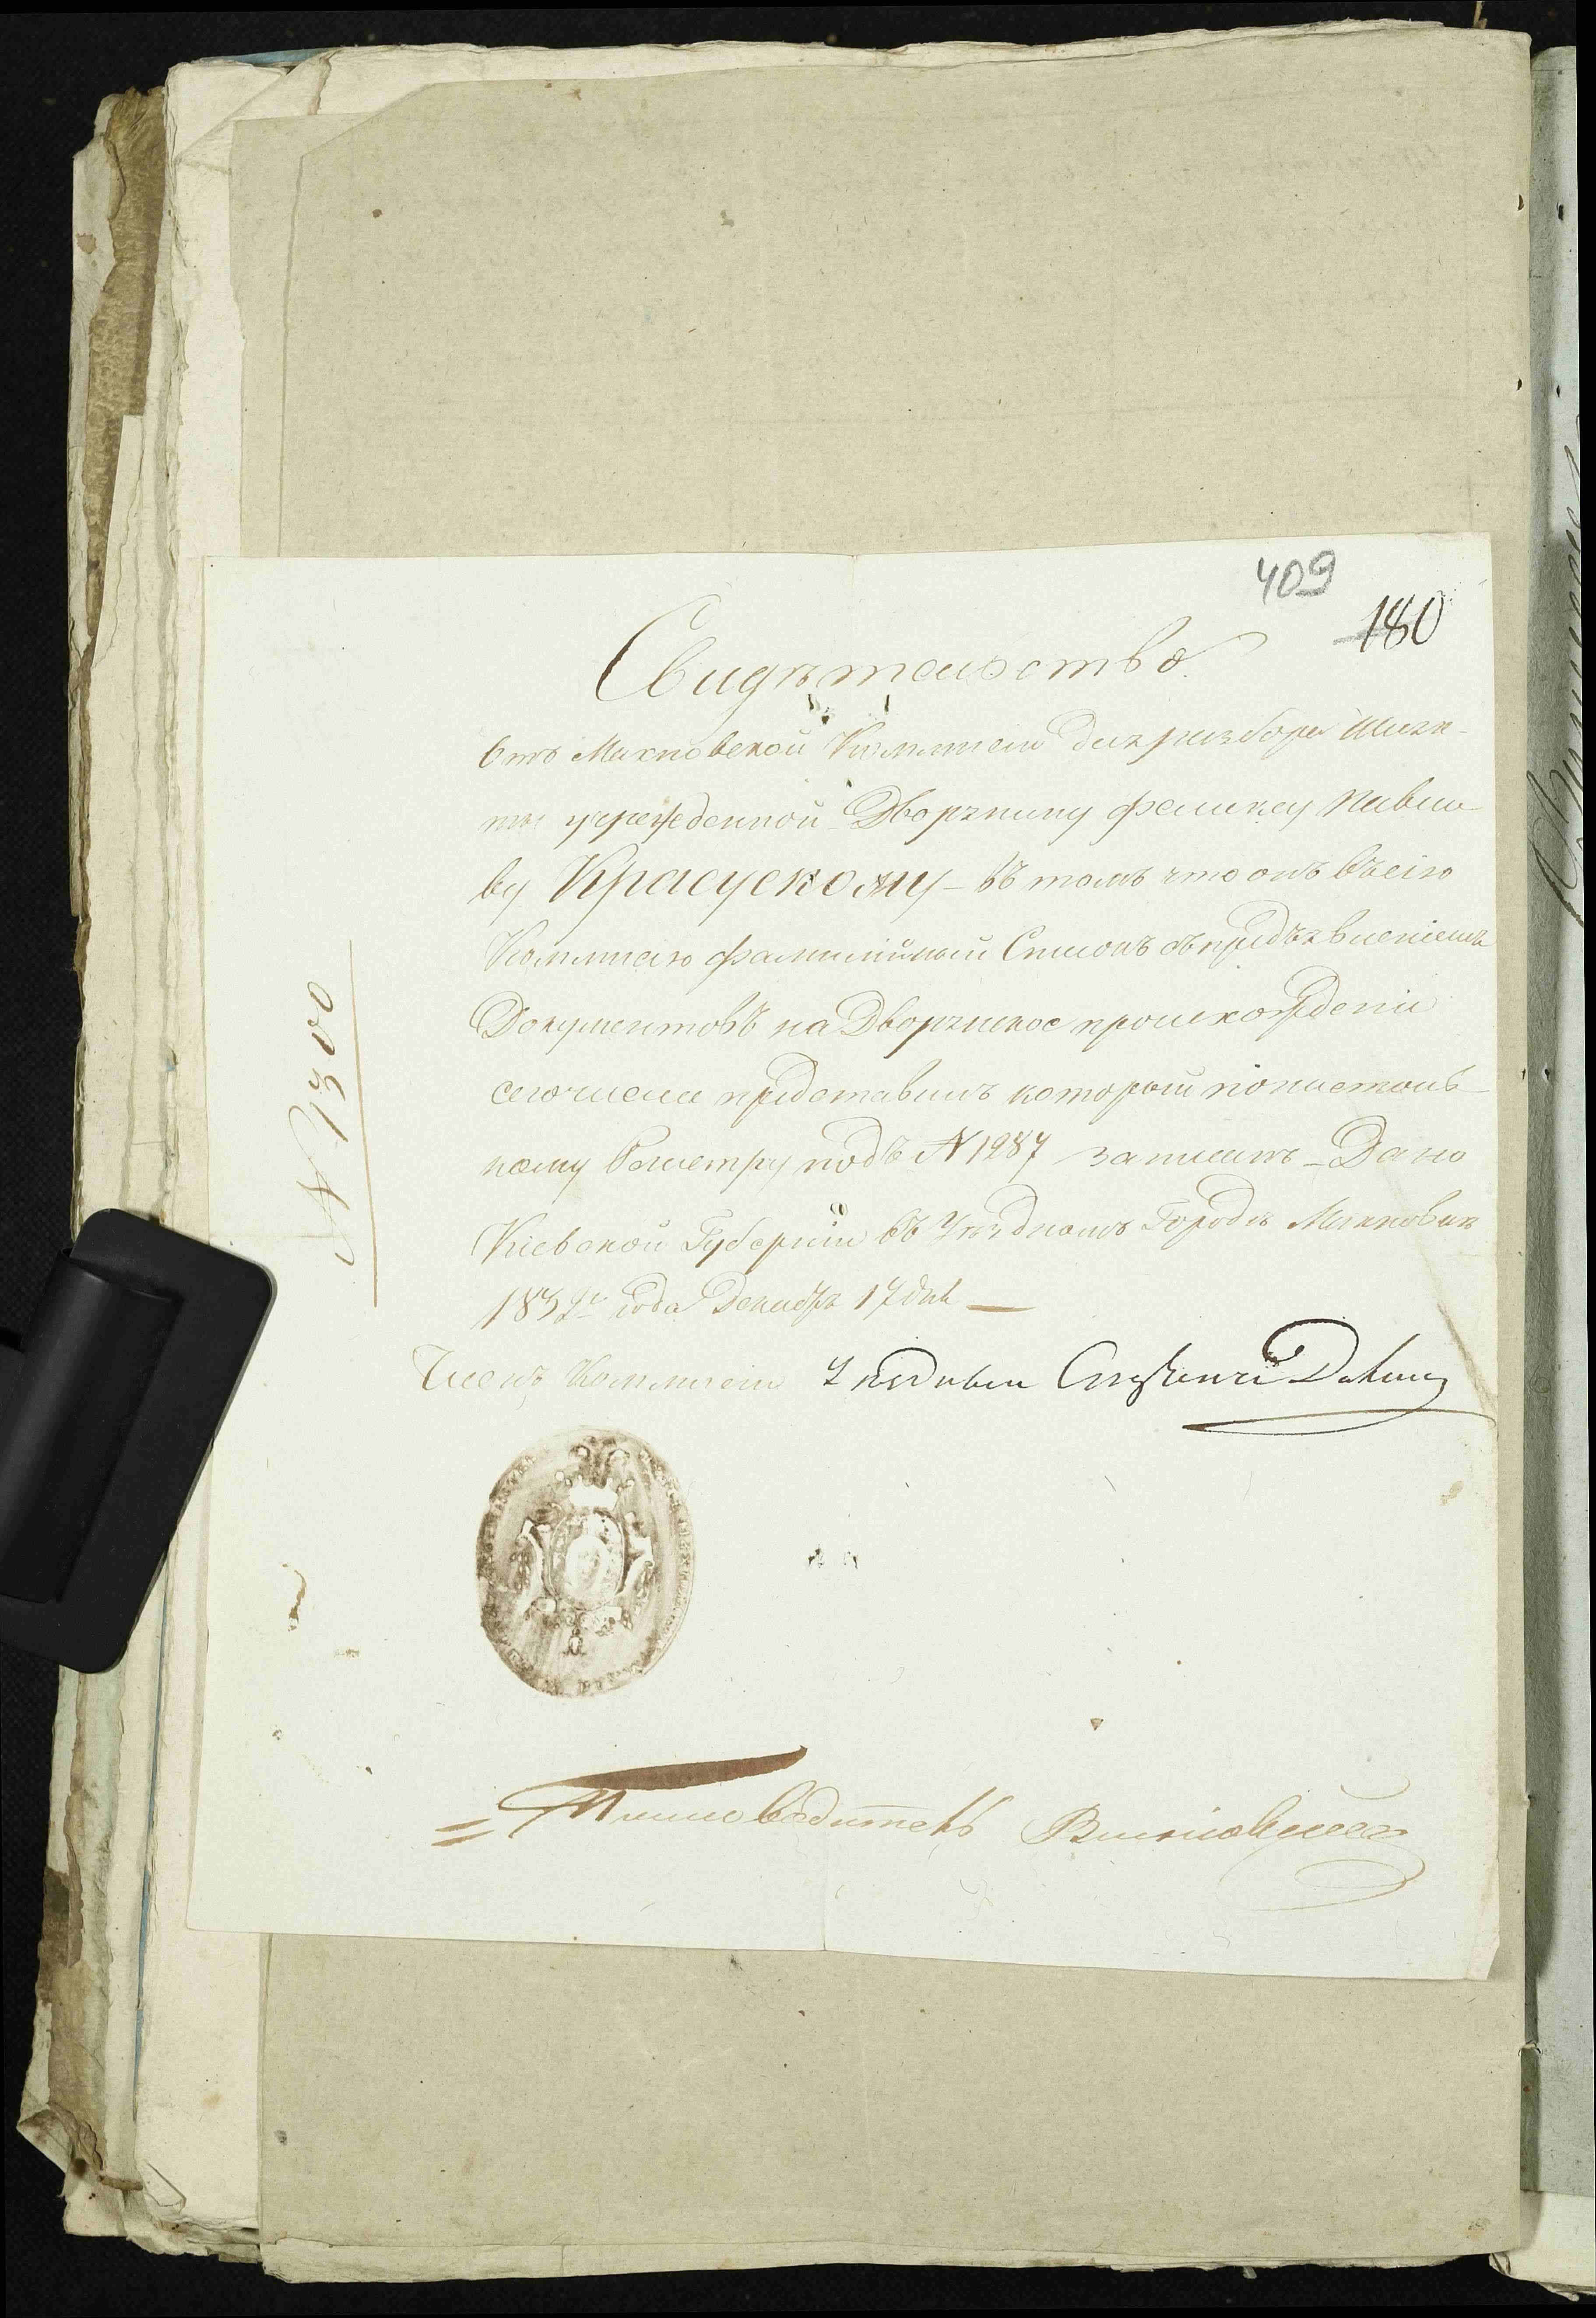 409
180
Свидѣтельство.
Отъ Махновской Коммисеи для разбора Шлях-
ты учрежденной Дворянину Феликсу Павло
ву Красускому – въ томъ что онъ въ сію
Коммисею Фамилійный Списокъ съ предъявленіемъ
Документовъ на Дворянское происхождении
сего числа представилъ который по настоль-
ному Регистру подъ N 1287 записанъ – Дано
Кіевской Губернии въ Уѣздномъ Городѣ Махновкѣ
1832го года Декабря 17 дня —
N 1300
Членъ Коммисеи Уѣздный
Письмоводитель